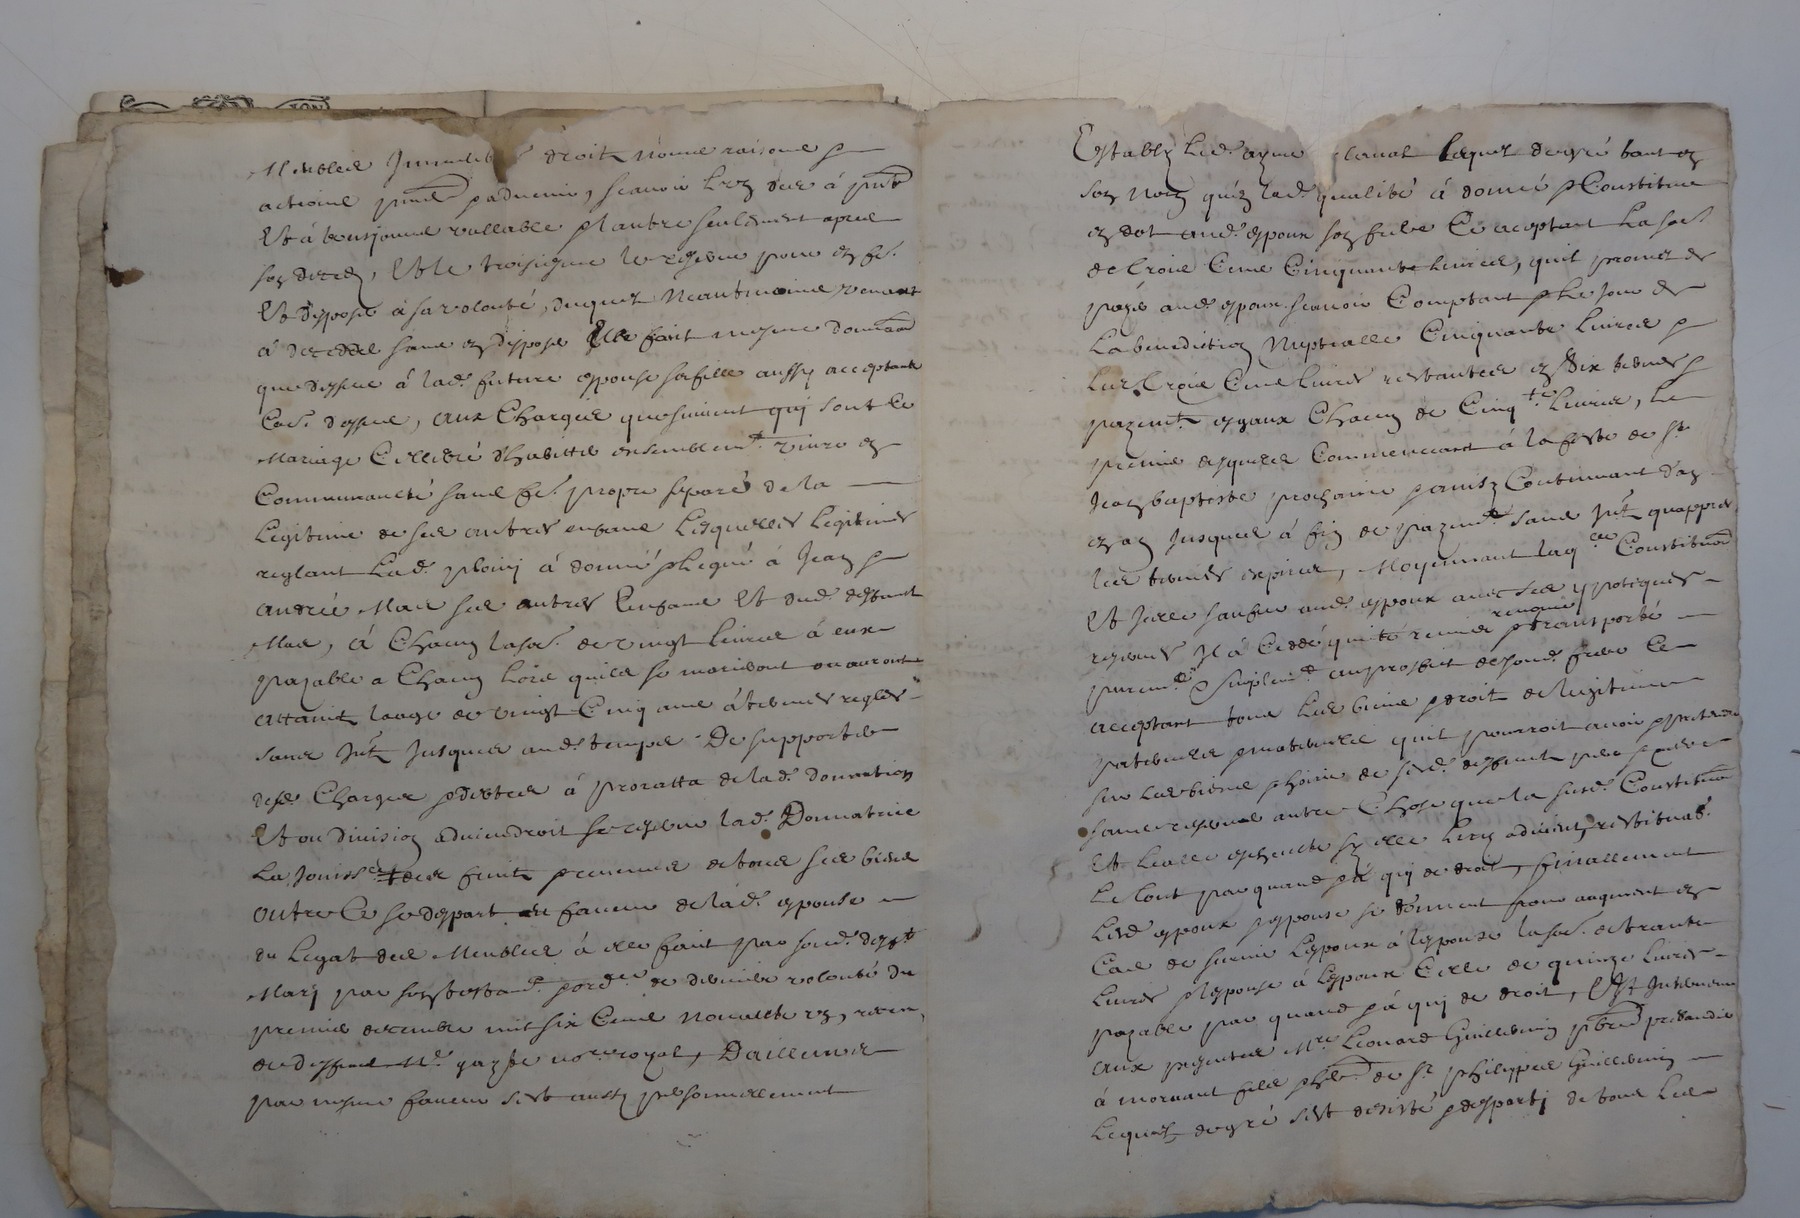 Meubles Immeubles droitz noms raisons &
actions pnts & advenir, scavoir l'un des à pnt
Et à tousjours vallable & lautre seulement apres
son deces, Et le troisiesme le reserve pour en fe.
Et disposer à sa volonté, duquel neantmoins venant
à deceder sans en disposer Elle fait mesme donnaon
que dessus à lad. future espouse sa fille aussy acceptante
Co.e dessus, aux Charges que suivent quy sont le
Mariage Cellebré d'habitter ensemblemt. vivre en
Communauté sans fe. propre separé de la
Legitime de ses autres enfans Lesquelles legitimes
reglant Lad. à donné & legué à Jean &
André Mas ses autres Enfans Et dud. deffunt
Mas, à Chacun la so.e de vingt livres à eux
payable a Chacun Lors quils se marieront ou auront
attaint laage de vingt Cinq ans à termes reglés
sans Int. Jusques aud. temps. De supporter
desd. Charges & debtes à proratta de lad. donnation
Et ou division adviendroit se reserve lad. Donnatrice
La Jouissce des fruitz & revenus de tous ses biens
outre Ce se despart en faveur de lad. espouse
du Legat des Meubles à elle fait par sond. defft
Mary par son testamt. & ordce de derniere volonté du
premier decembre mil six Cens Nonante un, receu,
de deffunt Me. nore. royal, D'ailleurs
par mesme faveur s'est aussy personnellement
Establi Led. ayme lequel de gré tant en
son Nom qu'en lad. qualité à donné & Constitue
en dot aud. espoux son frere Ce acceptant La so.e
de trois Cens Cinquante Livres, quil promet de
payer aud. espoux scavoir Comptant & le Jour de
La benediction Nuptialle Cinquante livres &
Les trois Cens livres restantes en six termes &
payemt. esgaux Chacun de Cinqte Livres, le
premier desquels Commencant à la feste de St
Jean baptiste prochaine & ainsy Continuant d'an
en an Jusques à fin de payemt. sans Int. quappres
les termes expirés, Moyennant laqlle Constituon
Et Icelle sauve aud. espoux avec ses ypoteques
reserves Il à Ceddé quitté remis renoncé & transporté
puremt. & simplemt. au proffit de sond. frere Ce
acceptant tous Les biens & droit de legitime
paternels & maternels quil pourroit avoir & pretendre
sur Les biens & hoirie de sesd. deffunts pere & mere
sans reserve autre Chose que la susd. Constituon
Et Icelle escheute sy elle lieu advient, restituab.
Le tout par quand & à quy de droit, finallement
Lesd. espoux & espouse se donnent pour augment en
Cas de survie L'espoux à lespouse la so.e de trante
Livres & lespouse à L'espoux Celle de quinze Livres
payable par quand & à quy de droit, Est Intervenu
aux presentes Mre. Leonard Guillermin pbre prebandier
à mornant fils & her. de Sr. philippes Guillermin
Lequel de gré s'est desisté & desparti de tous Les